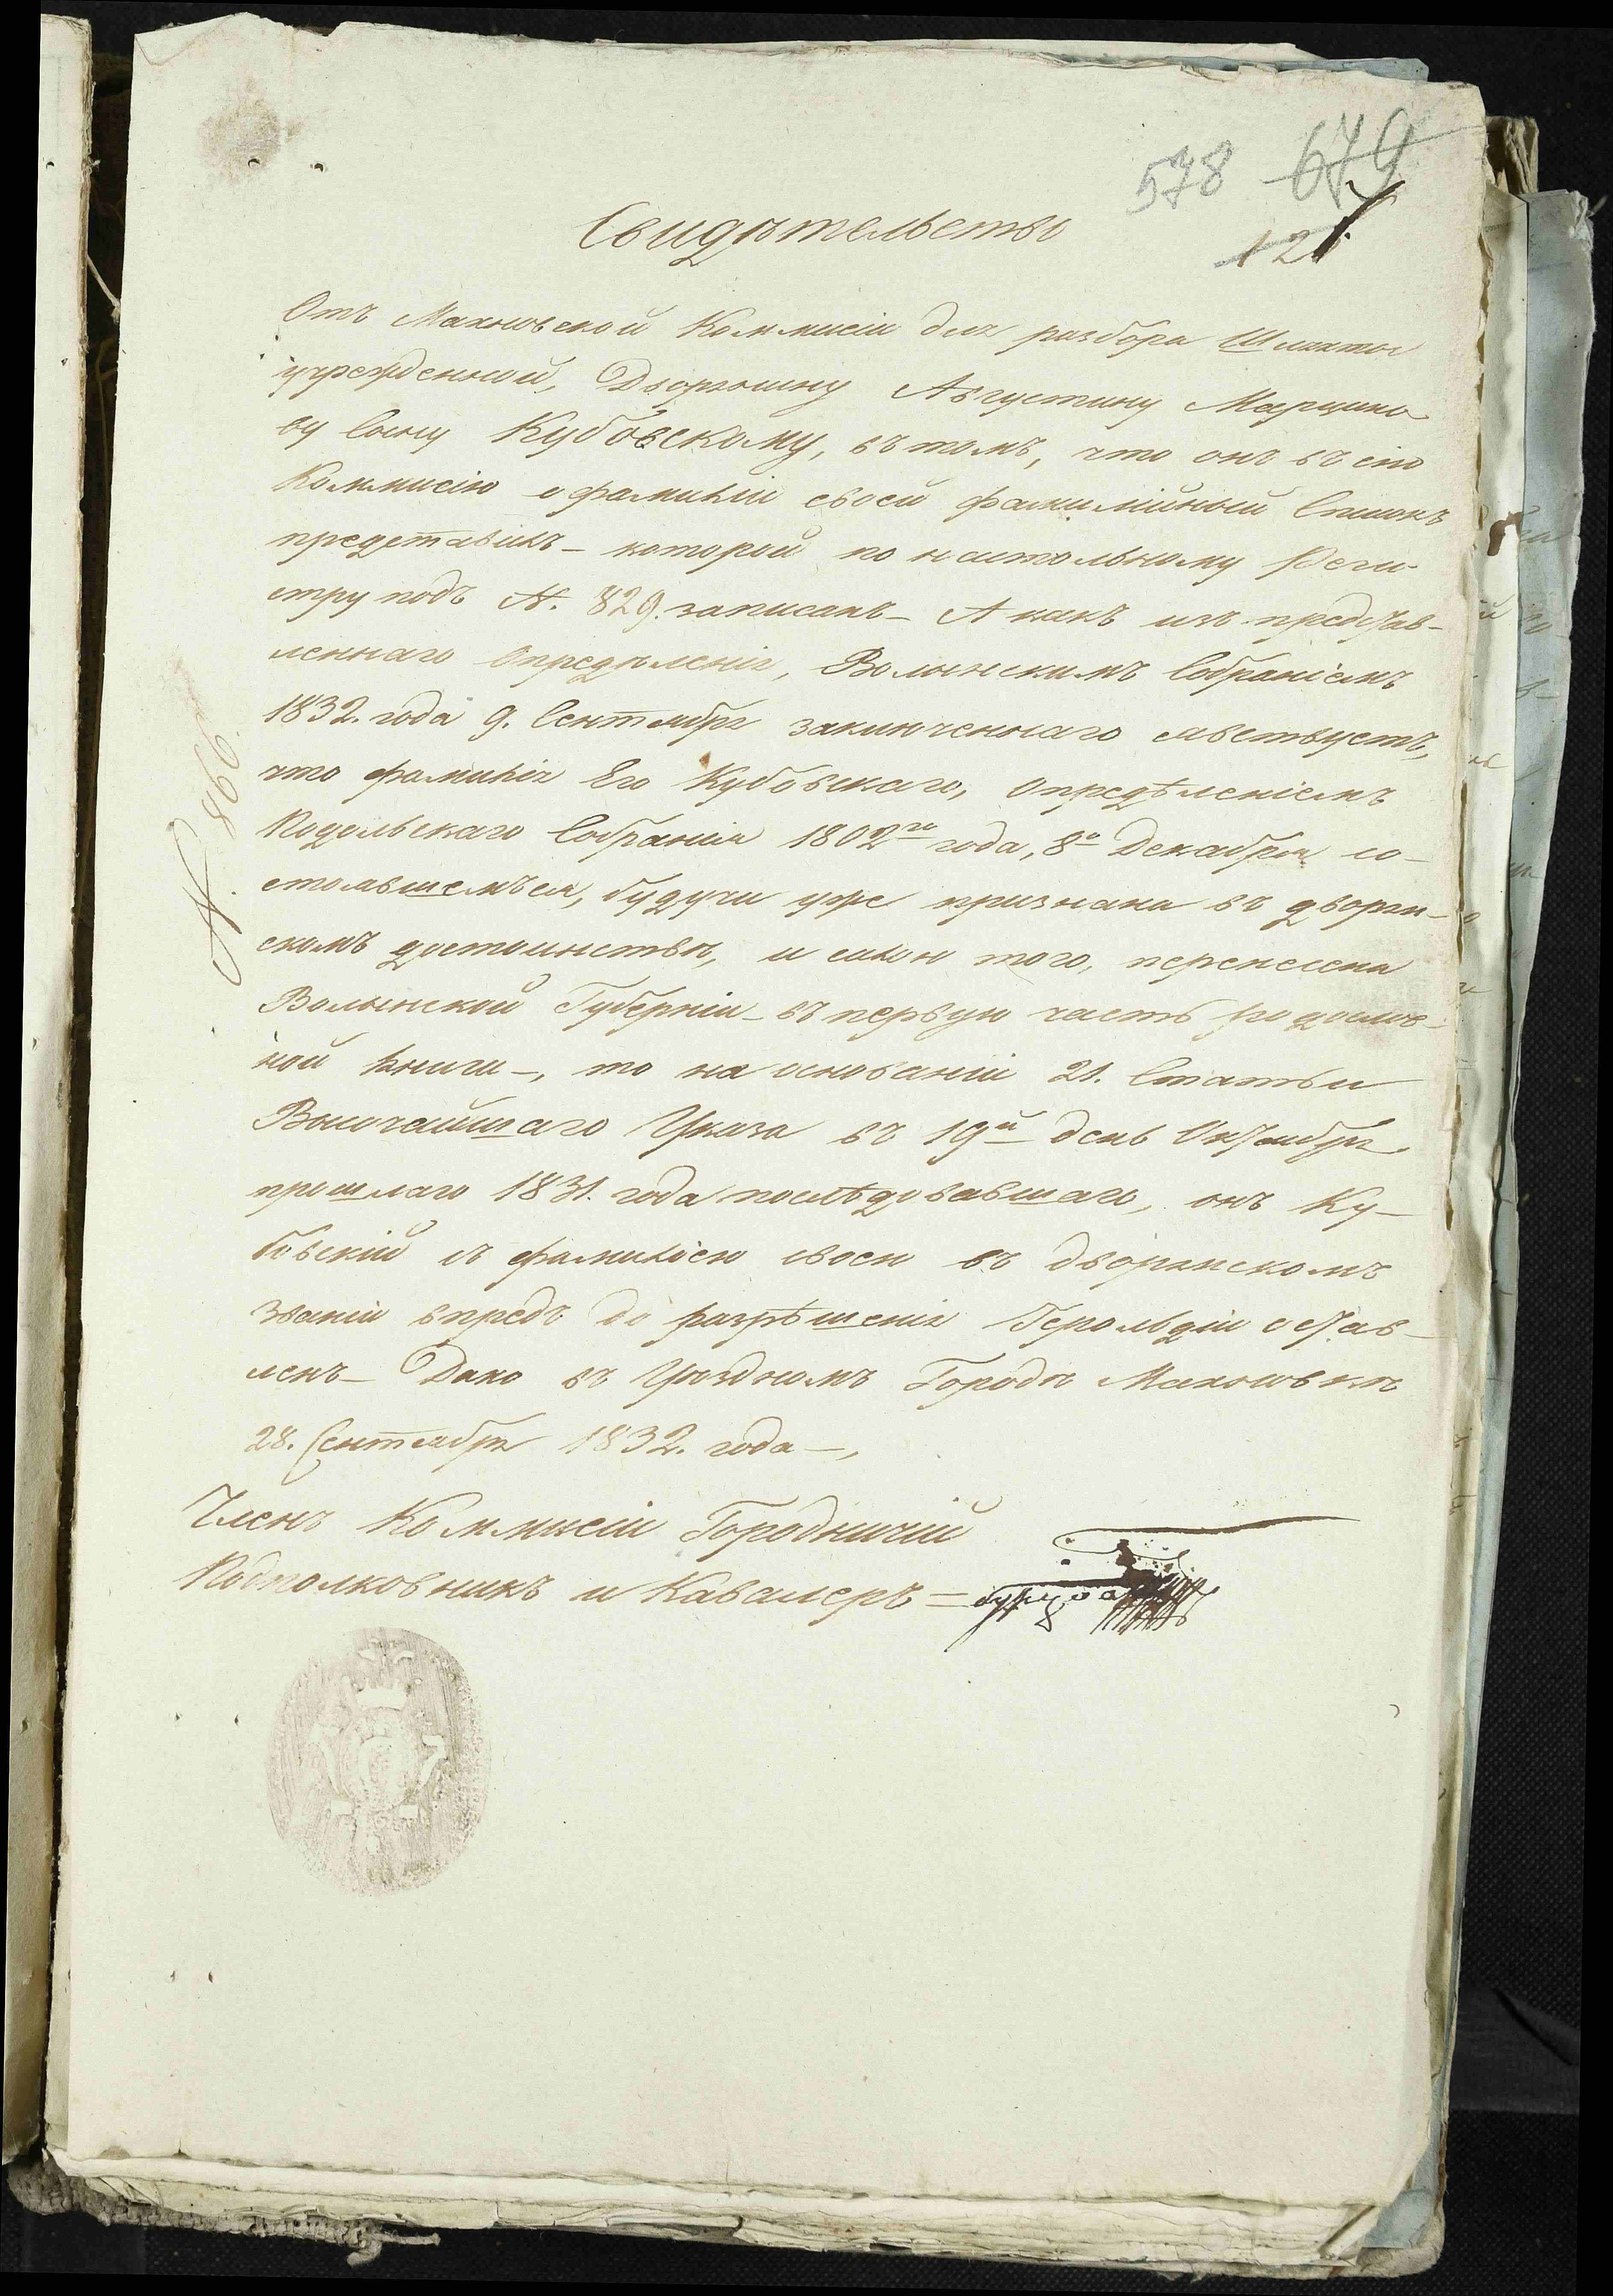 578 679
121
Свидѣтельство
Отъ Махновской Коммисіи для разбора Шляхты
учрежденной, Дворянину Августину Марцино
ву Сыну Кубовскому, въ томъ, что онъ въ сію
Коммисію о фамиліи своей фамилійный Списокъ
представилъ – которой по настольному Реги-
стру подъ N. 829. записанъ – А какъ изъ представ-
леннаго Опредѣленія, Волынскимъ Собраніемъ
1832. года 9. Сентября заключеннаго явствуетъ,
что фамилія Его Кубовскаго, Опредѣленіемъ
Подольскаго Собранія 1802го года, 8о Декабря со-
стоявшемъся, будучи уже признана въ дворян-
скомъ достоинствѣ, и сверх того, перенесена
Волынской Губерніи – въ первую часть родослов-
ной книги –, то на основаніи 21. Статьи
Высочайшаго Указа въ 19й день Октября
прошлаго 1831. года послѣдовавшаго, онъ Ку-
бовскій съ фамиліею своею въ дворянскомъ
Званіи впредь до разрѣшенія Герольдіи остав-
ленъ – Дано въ Уѣздномъ Городѣ Махновкѣ
28. Сентября 1832. года –,
N. 866.
Членъ Коммисіи Городничій
Подполковникъ и Кавалеръ =